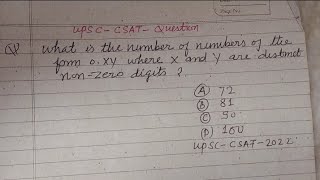 UPSC-CSAT-Question
Q What is the number of numbers of the
form 0.XY where X and Y are distinct
non-zero digits ?
(A) 72
(B) 81
(C) 90
(D) 100
UPSC-CSAT-2022